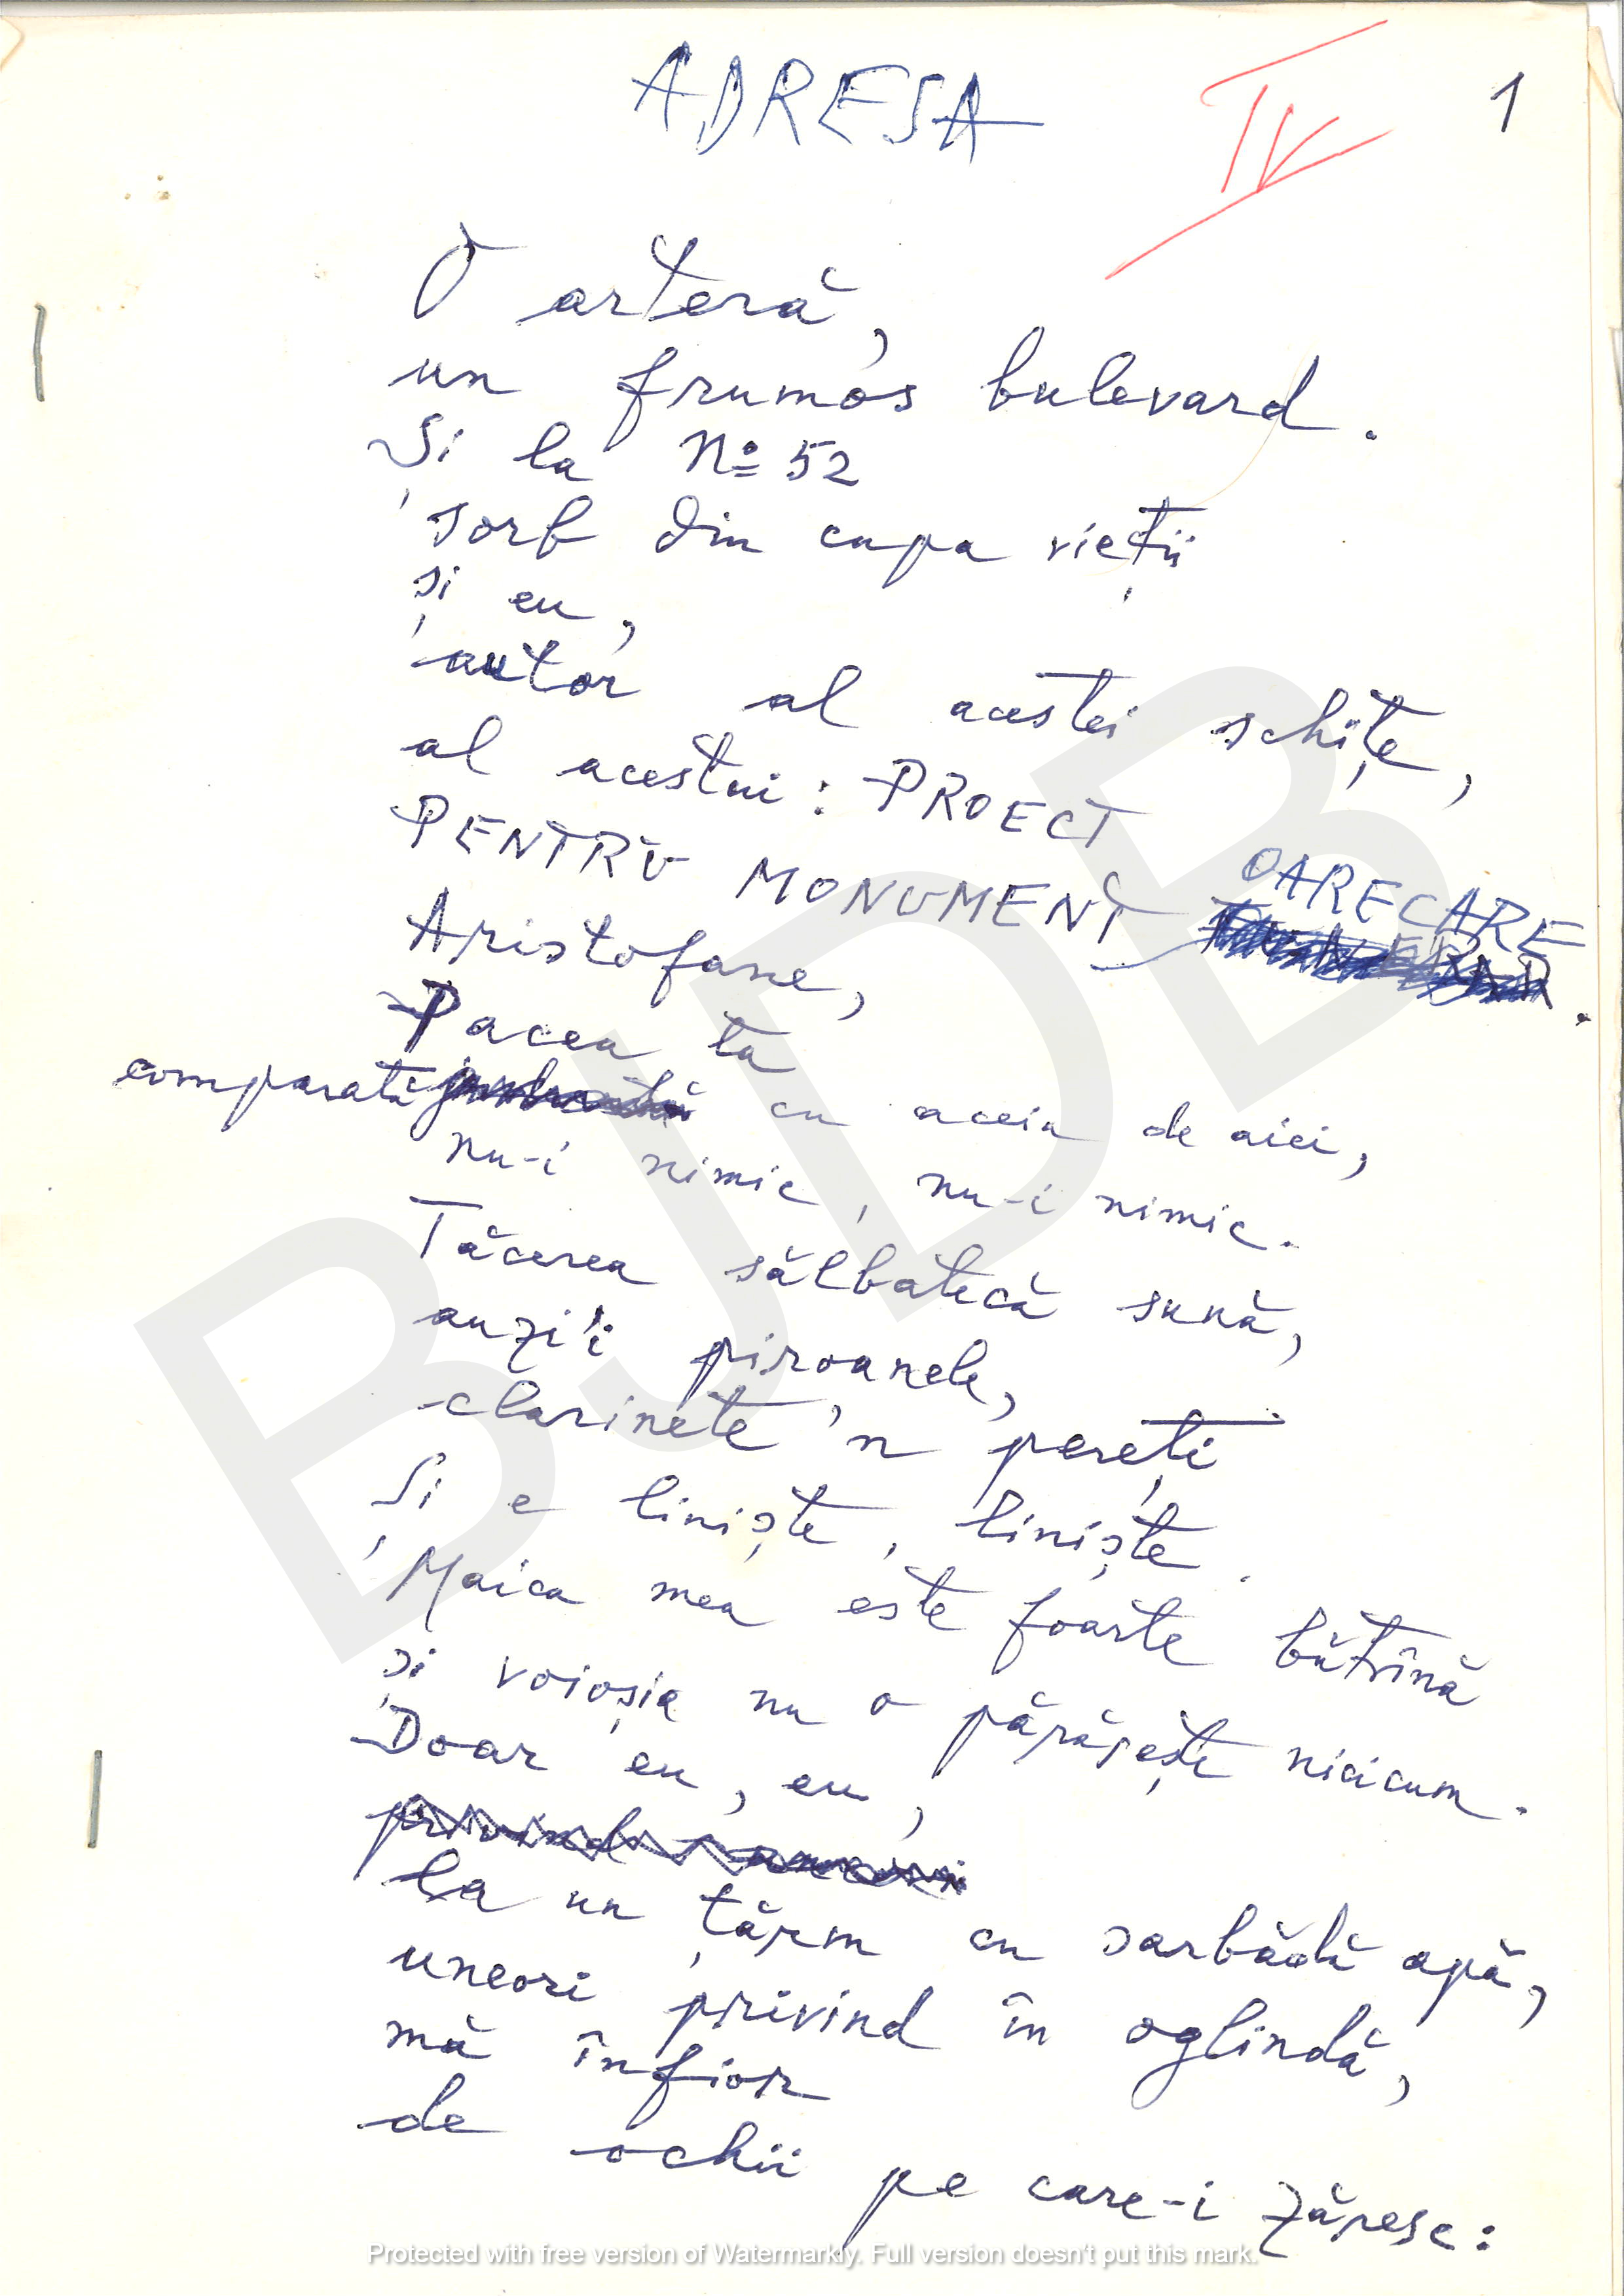 ADRESA
IV
1
O arteră,
un frumos bulevard.
Și la No 52
sorb din cupa vieții
și eu,
autor al acestei schițe,
al acestui: PROECT
PENTRU MONUMENT OARECARE.
Aristofane,
Pacea ta
comparată cu aceia de aici,
nu-i nimic, nu-i nimic.
Tăcerea sălbatecă sună,
auzi'i piroanele,
clarinete 'n pereți
Și e liniște, liniște.
Maica mea este foarte bătrînă
și voioșia nu o părăsește nicicum.
Doar eu, eu,
privind
la un țărm cu sarbădă apă,
uneori privind în oglindă,
mă înfior
de ochii pe care-i zăresc:
BJDB
Protected with free version of Watermarkly. Full version doesn't put this mark.